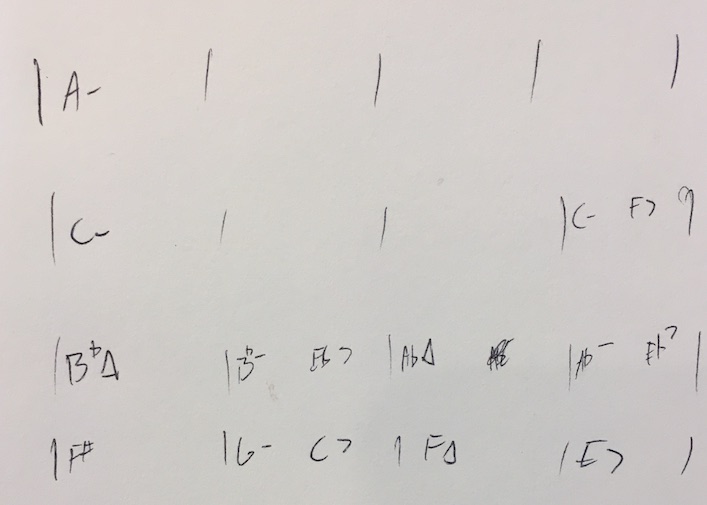 | A- | | | |
| C- | | | C- F7 |
| B♭Δ | B♭- Eb7 | AbΔ | Ab- Eb7 |
| F# | G- C7 | FΔ | E7 |